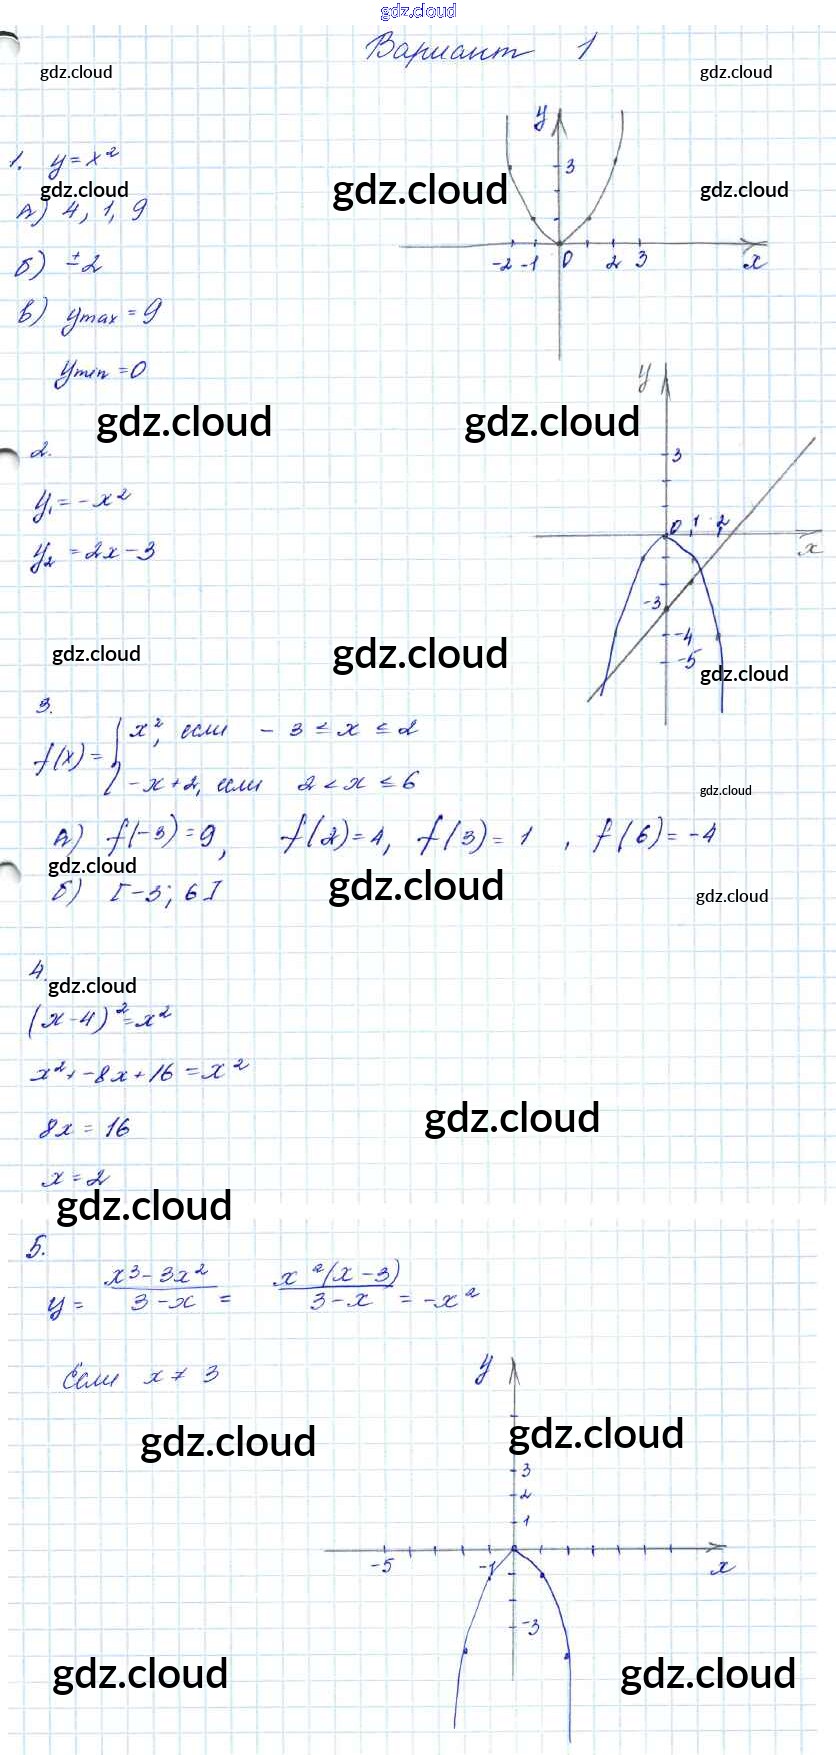 gdz.cloud
Вариант 1
gdz.cloud gdz.cloud
y
1. y = x²
3
gdz.cloud gdz.cloud gdz.cloud
А) 4, 1, 9
б) ±2
-2 -1 0 2 3 x
в) y max = 9
y min = 0
y
gdz.cloud gdz.cloud
2.
3
y₁ = -x²
0 1 2
x
y₂ = 2x - 3
-3
-4
gdz.cloud gdz.cloud
-5
gdz.cloud
3.
f(x) = { x², если -3 ≤ x ≤ 2
-x+2, если 2 < x ≤ 6
gdz.cloud
А) f(-3) = 9, f(2) = 4, f(3) = 1, f(6) = -4
gdz.cloud
б) [-3; 6]
gdz.cloud gdz.cloud
4.
gdz.cloud
(x-4)² = x²
x² + -8x + 16 = x²
gdz.cloud
8x = 16
x = 2
gdz.cloud
5.
y = x³ - 3x² / 3 - x = x²(x - 3) / 3 - x = -x²
Если x ≠ 3
y
gdz.cloud gdz.cloud
3
2
1
-5 -1 x
-3
gdz.cloud gdz.cloud